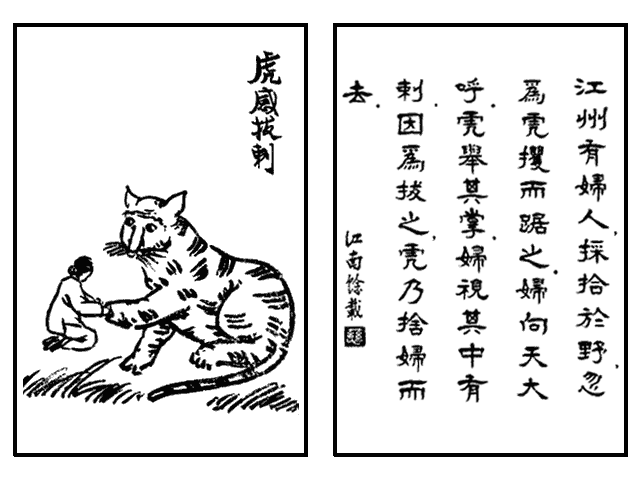 虎感拔刺
江州有婦人，採拾於野，忽
爲虎攫而踞之。婦向天大
呼。虎舉其掌。婦視其中有
刺。因爲拔之，虎乃捨婦而
去。
江南餘載